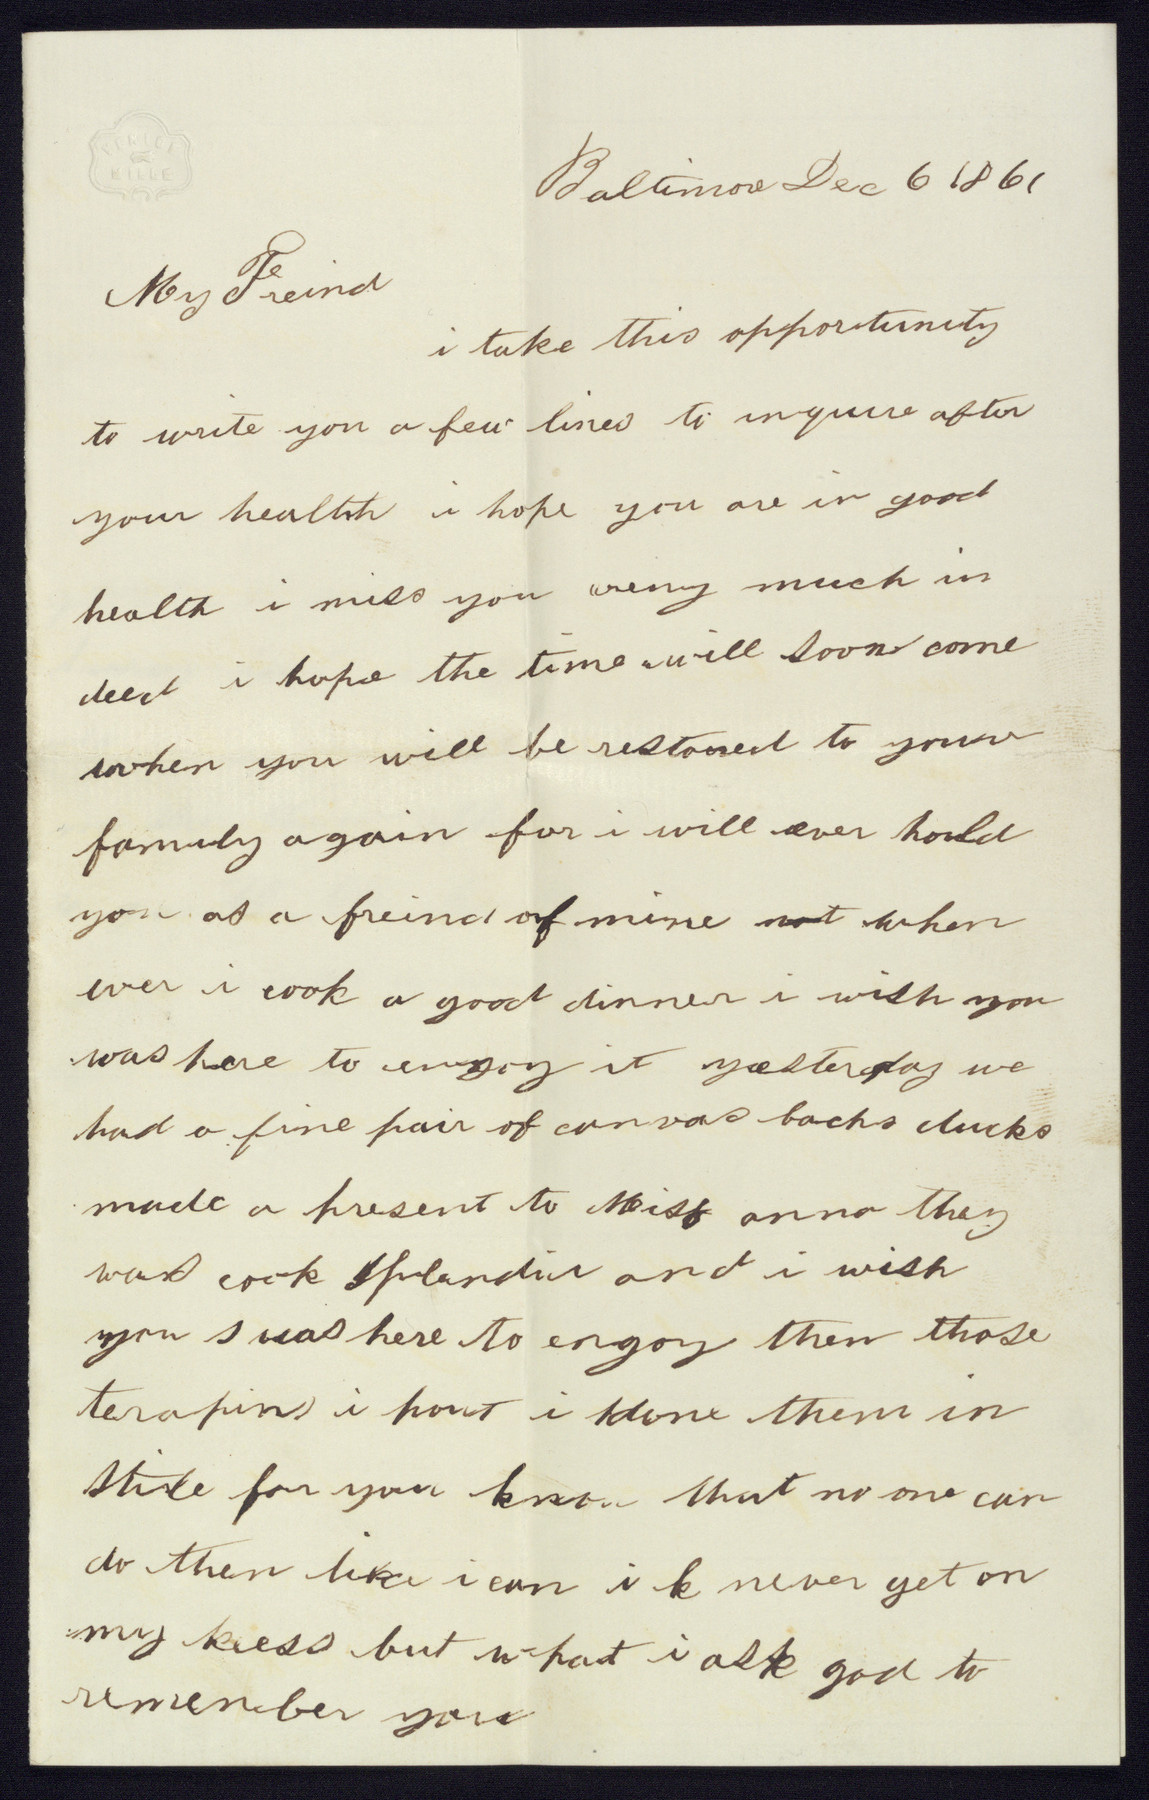 Baltimore Dec 6 1861
My Freind
i take this opportunity
to write you a few lines to inquire after
your healthh i hope you are in good
health i miss you veny much in
deed i hope the time will soon come
when you will be restored to your
family again for i will ever hould
you as a freind of mine not when
ever i cook a good dinner i wish you
was here to engoy it yesterday we
had a fine pair of canvas backs ducks
made a present to Miss anna they
was cook splandid and i wish
you was here to engoy then those
terapins i done them in
stile for you know that no one can
do then like i can i never get on
my knees but what i ask god to
remember you